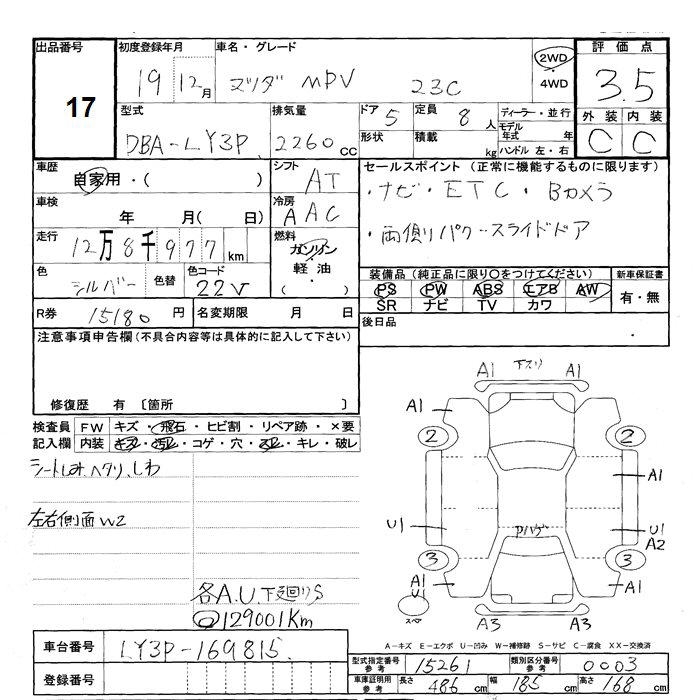 出品番号
17
初度登録年月
19 12月
車名・グレード
マツダ MPV 23C
2WD
・
4WD
評価点
3.5
外装 内装
C C
型式
DBA-LY3P
排気量
2260cc
ドア 5
形状
定員 8人
積載 kg
ディーラー・並行
モデル年式 年
ハンドル 左・右
車歴
自家用・( )
シフト
AT
セールスポイント(正常に機能するものに限ります)
・ナビ・ETC・Bカメラ
・両側パワースライドドア
車検
年 月( 日)
冷房
AAC
走行
12万8千977km
燃料
ガソリン
軽油
( )
色
シルバー
色替
色コード
22V
装備品(純正品に限り○をつけてください)
PS PW ABS エアB AW
SR ナビ TV カワ
新車保証書
有・無
R券 15180円
名変期限 月 日
後日品
注意事項申告欄(不具合内容等は具体的に記入して下さい)
修復歴 有 〔箇所 〕
検査員記入欄
FW キズ・飛石・ヒビ割・リペア跡・×要
内装 キズ・汚レ・コゲ・穴・スレ・キレ・破レ
シートしみ、ヘタリ、しわ
左右側面W2
各A.U.下廻りS
129001Km
A1 下スリ A1
A1
2 2
A1
U1
Pハゲ
U1
A2
3 3
A1
U1
A1
スペ
A3 A3
A-キズ E-エクボ U-凹み W-補修跡 S-サビ C-腐食 XX-交換済
車台番号
LY3P-169815
登録番号
型式指定番号
参考
15261
類別区分番号
参考
0003
車庫証明用
参考
長さ 486cm 幅 185cm 高さ 168cm